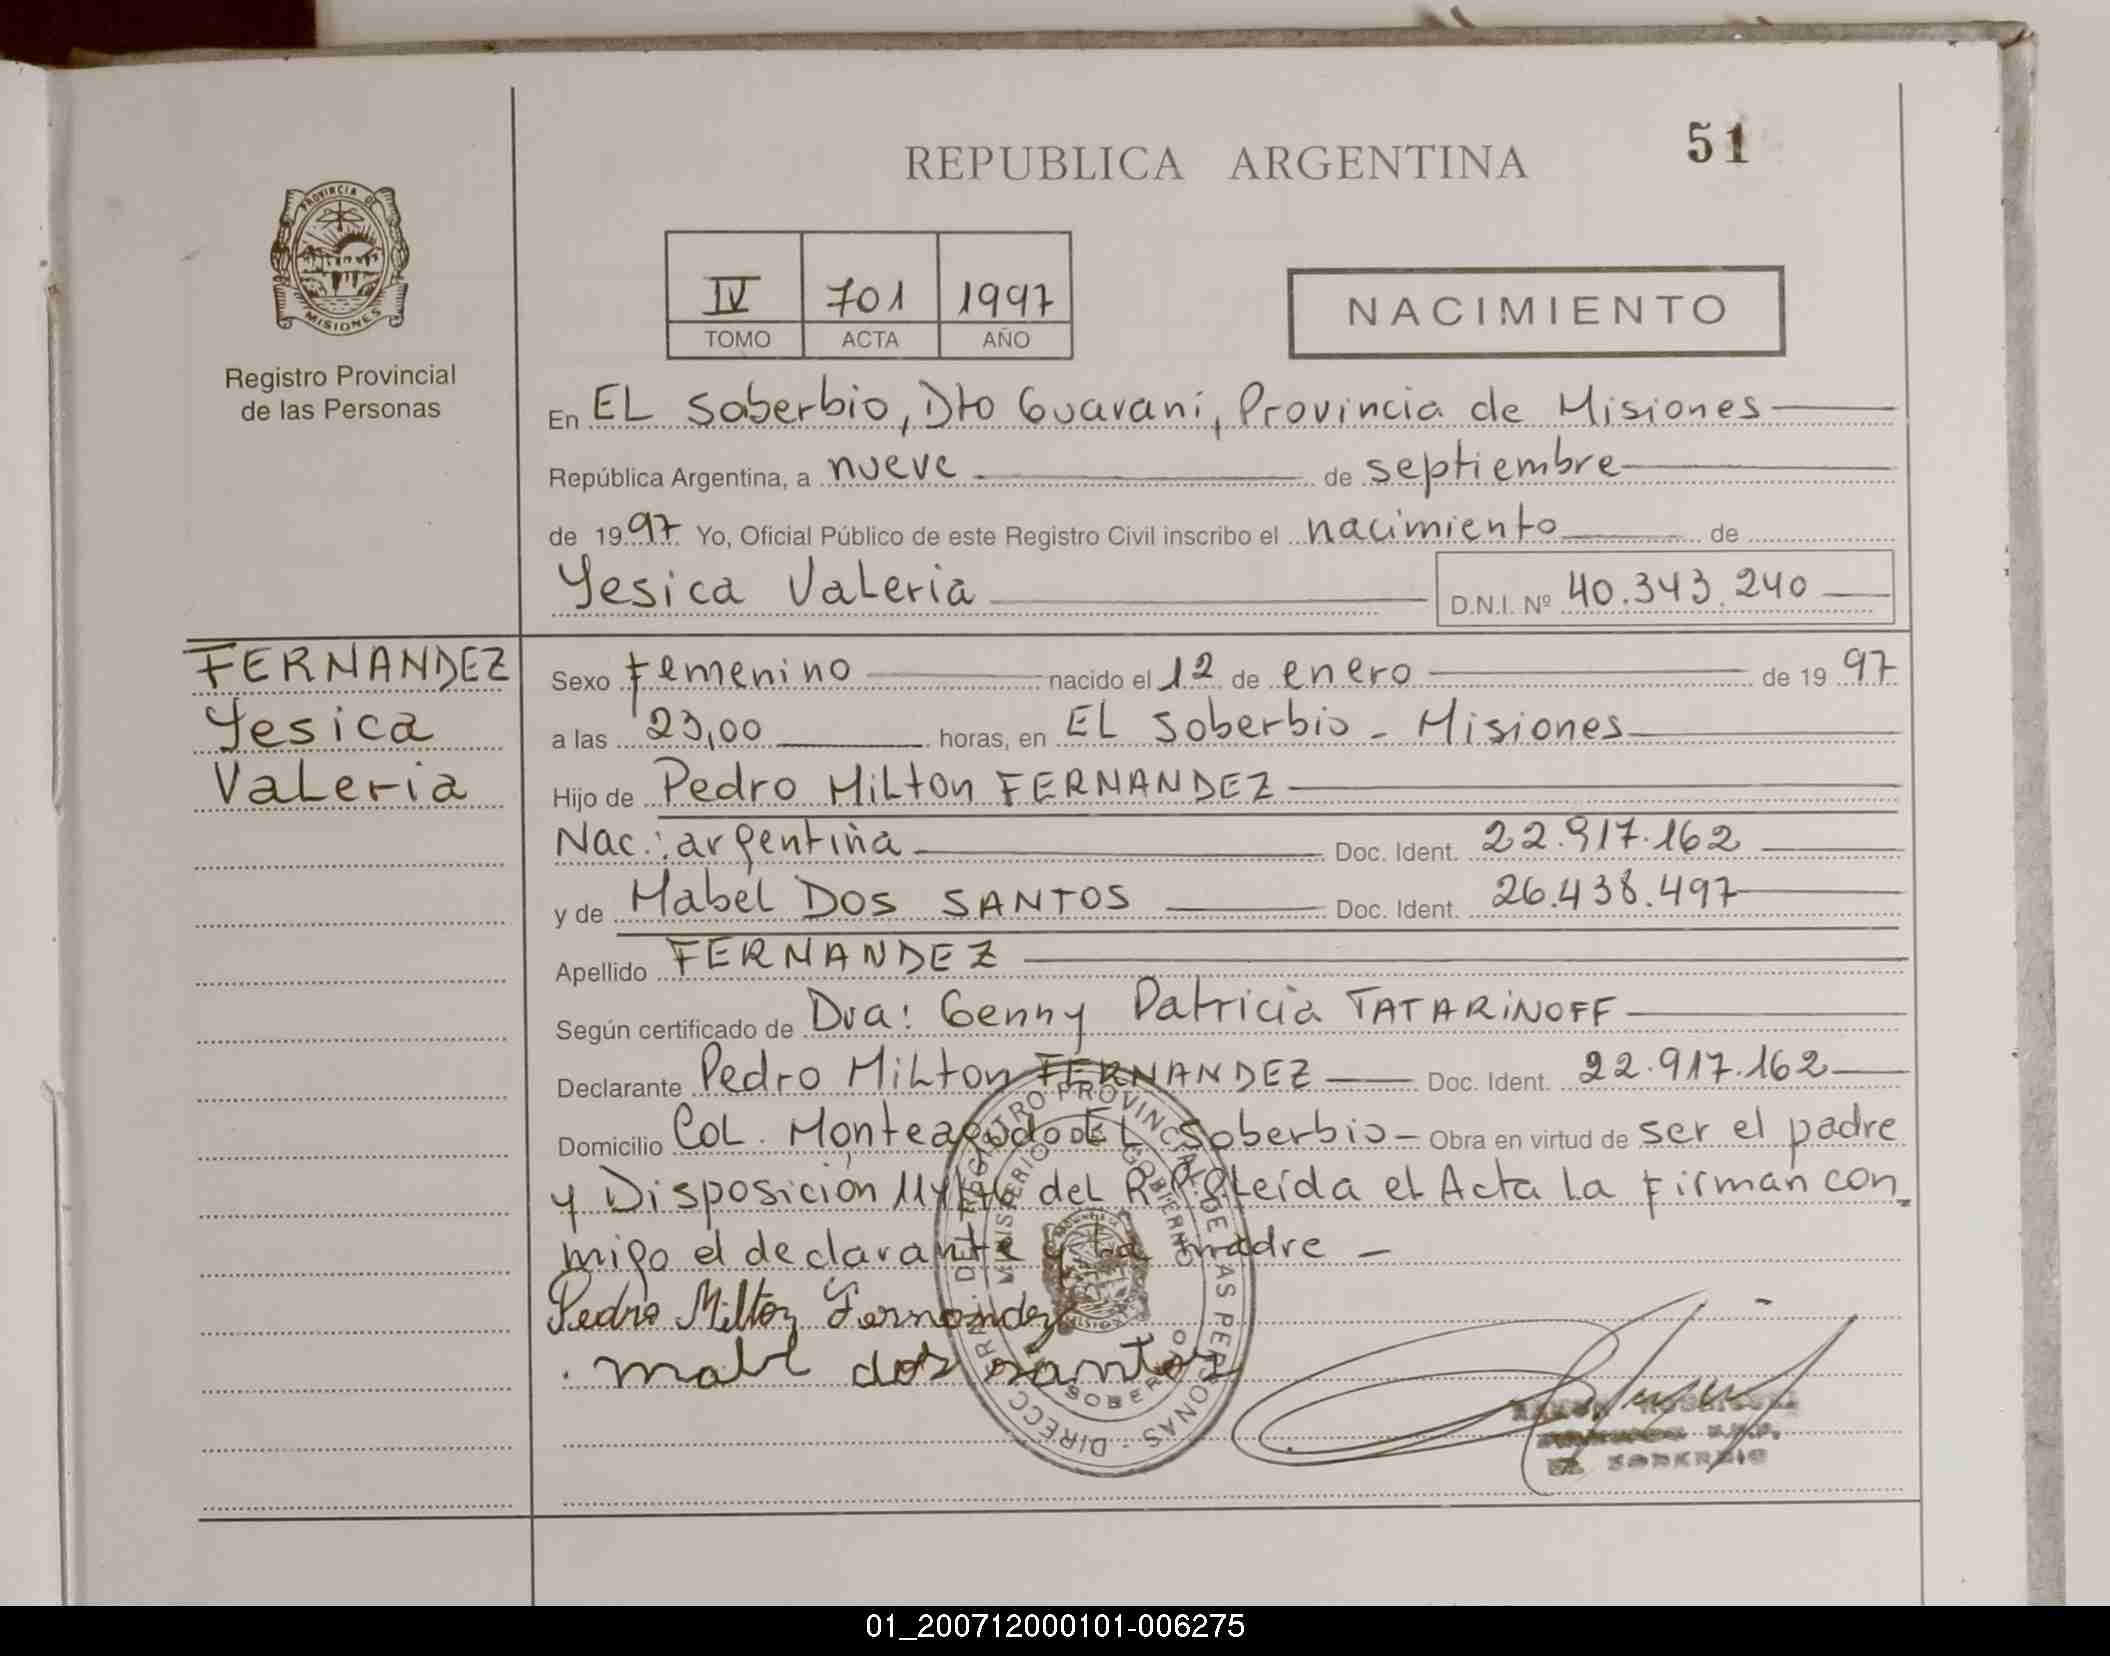 51
REPUBLICA ARGENTINA
PROVINCIA DE
MISIONES
Registro Provincial
de las Personas
IV 701 1997
TOMO ACTA AÑO
NACIMIENTO
En EL Soberbio, Dto Guaraní, Provincia de Misiones
República Argentina, a nueve de septiembre
de 1997 Yo, Oficial Público de este Registro Civil inscribo el nacimiento de
Yesica Valeria D.N.I. Nº 40.343.240
FERNANDEZ
Yesica
Valeria
Sexo Femenino nacido el 12 de enero de 1997
a las 23,00 horas, en EL Soberbio - Misiones
Hijo de Pedro Milton FERNANDEZ
Nac.: argentina Doc. Ident. 22.917.162
y de Mabel DOS SANTOS Doc. Ident. 26.438.497
Apellido FERNANDEZ
Según certificado de Dra: Genny Patricia TATARINOFF
Declarante Pedro Milton FERNANDEZ Doc. Ident. 22.917.162
Domicilio Col. Monteagudo EL Soberbio - Obra en virtud de ser el padre
y Disposición del Leída el Acta la Firman con
migo el declarante y la madre -
Pedro Milton Fernandez
mabel dos santos
DIRECC. GRAL. DEL REGISTRO PROVINCIAL DE LAS PERSONAS
MINISTERIO DE GOBIERNO
SOBERBIO
EL SOBERBIO
01_200712000101-006275